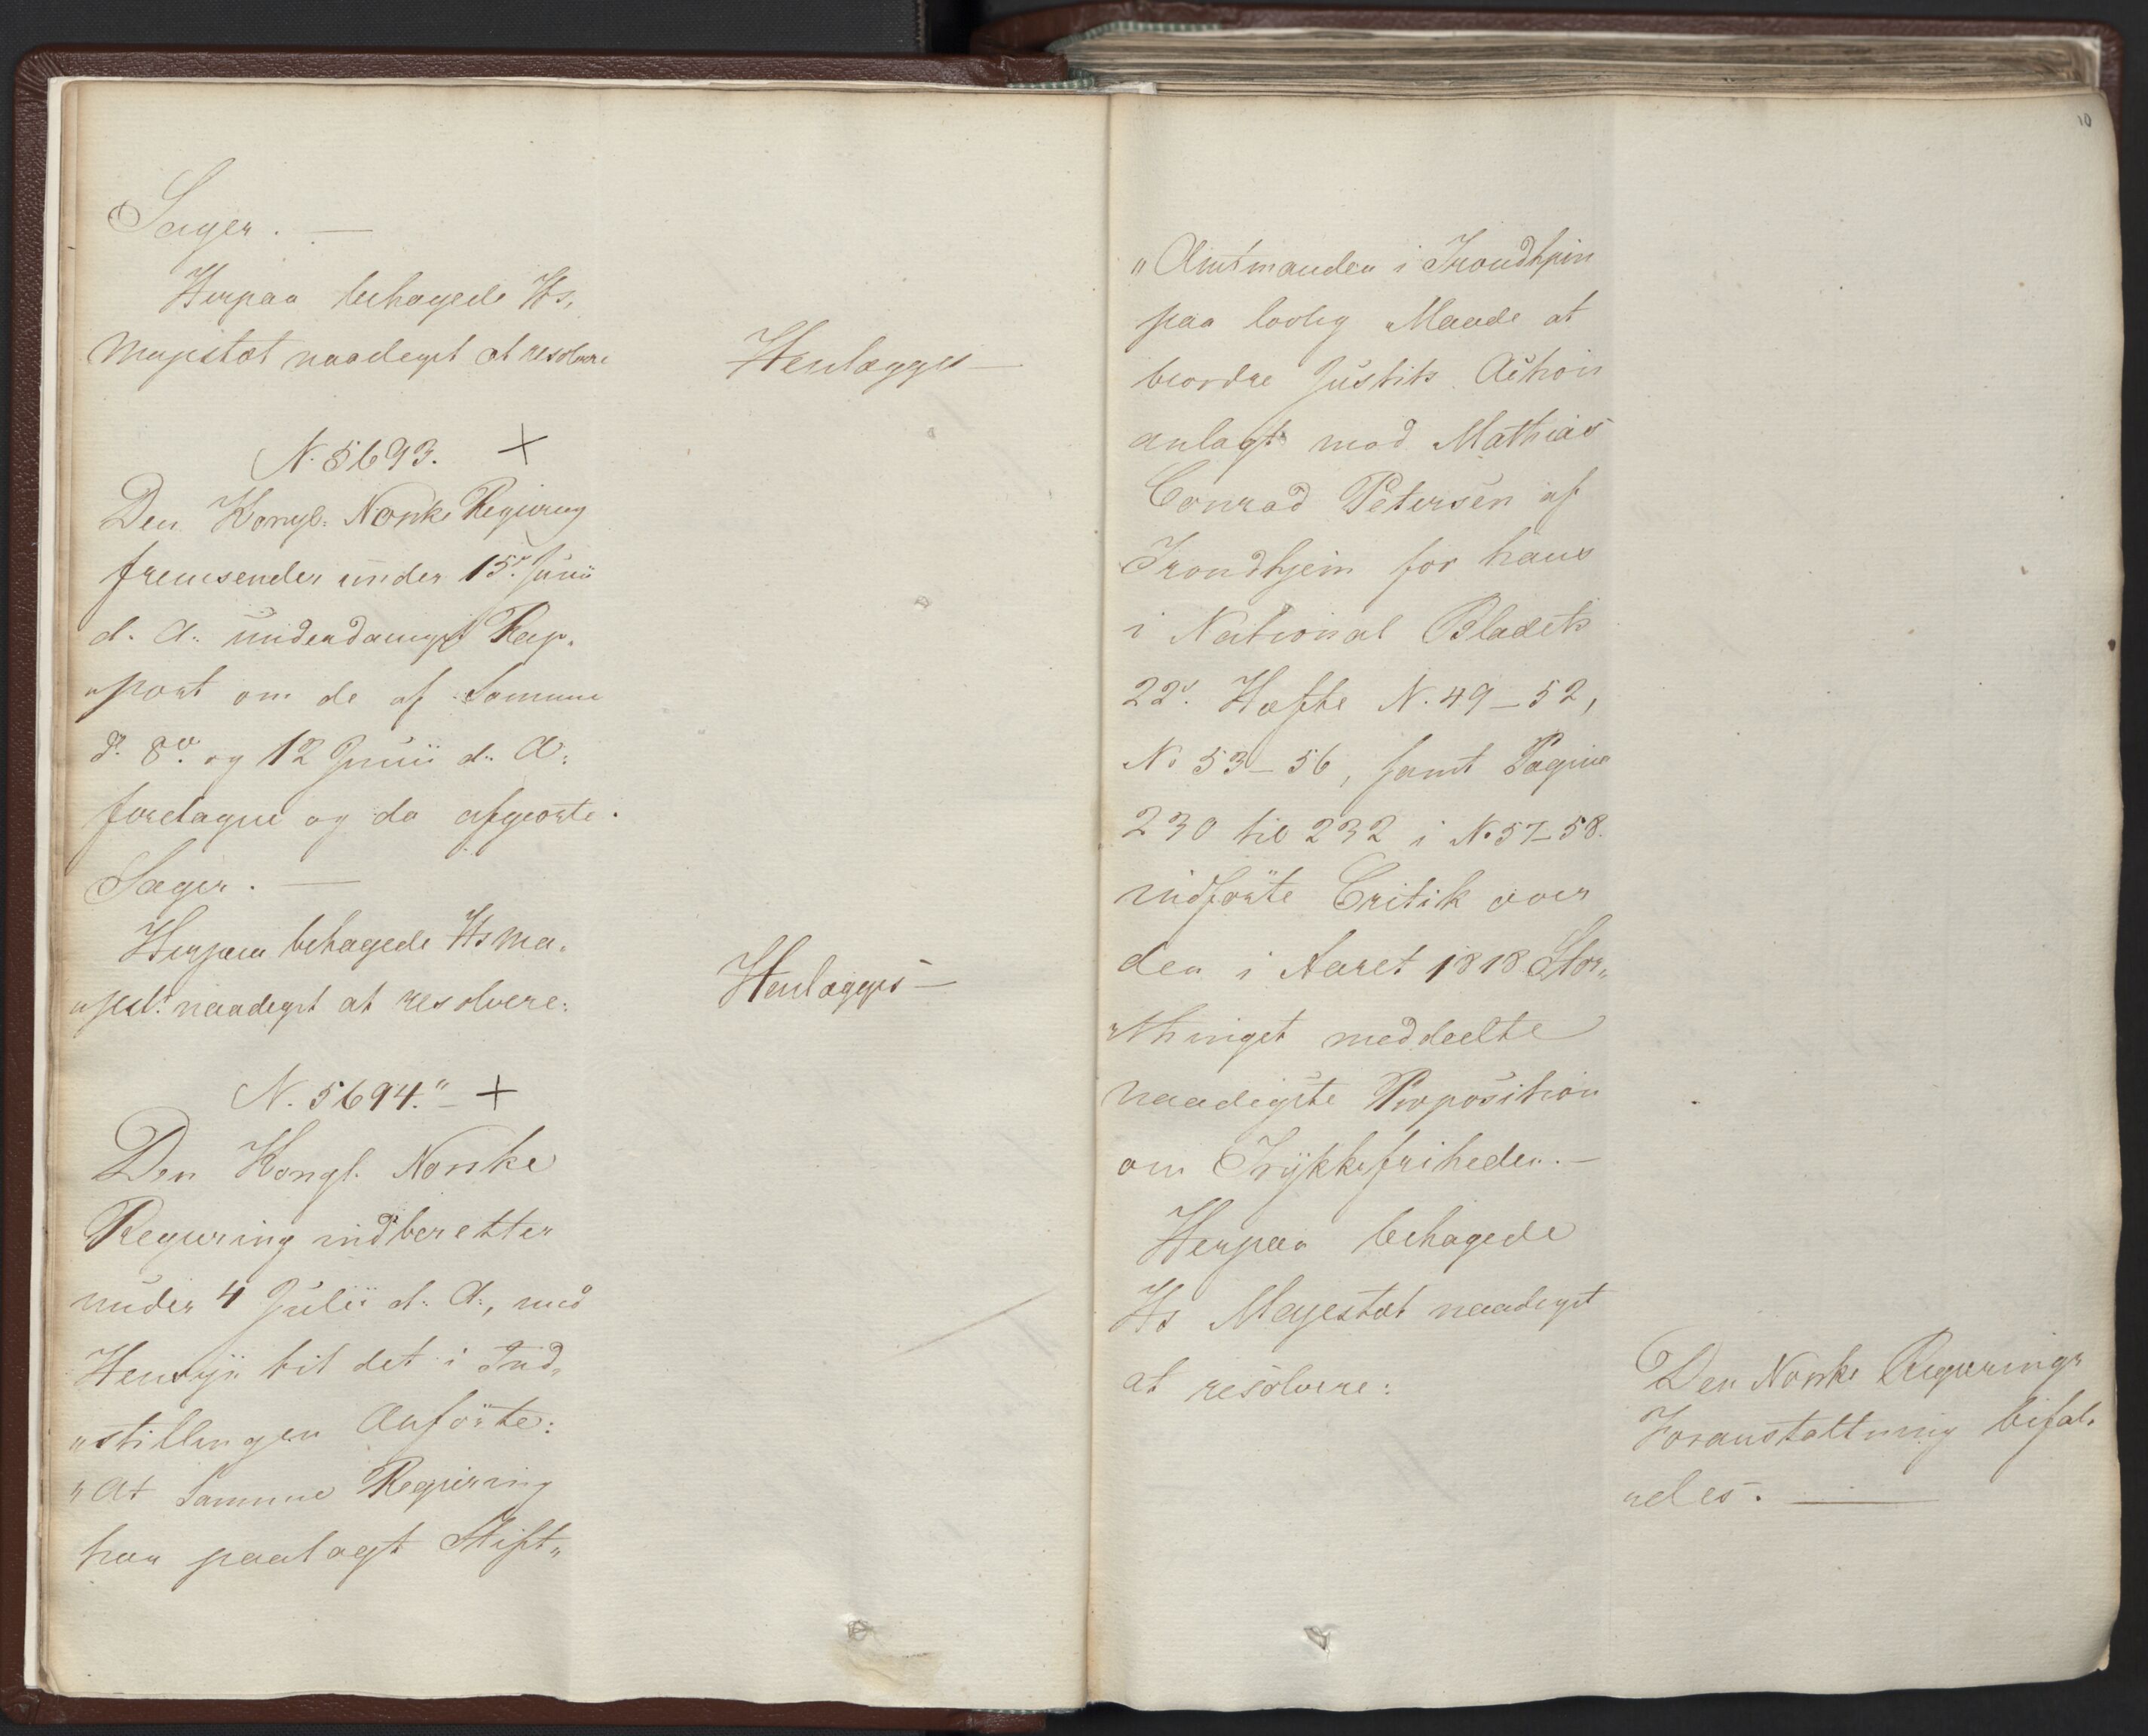 Sager. —
Herpaa behagede Hs.
Majestæt naadigst at resolvere
Henlægges —
N. 5693. +
Den Kongl: Norske Regjering
fremsender under 15de Junii
d. A: underdanigst Rap„
„port om de af Samme
d. 8de og 12 Junii d: A:
foretagne og da afgiorte
Sager. —
Herpaa behagede Hs Ma„
„jest: naadigst at resolvere:
Henlægges —
N. 5694." — +
Den Kongl. Norske
Regiering indberetter
under 4 Julii d: A:, med
Hensyn til det i Ind„
„stillingen Anförte:
„At Samme Regiering
har paalagt Stift„
10
„Amtmanden i Trondhjem
paa lovlig Maade at
beordre Justits Action
anlagt mod Mathias
Conrad Petersen af
Trondhjem for hans
i National Bladets
22de Hæfte N. 49–52,
No 53–56, samt Pagina
230 til 232 i No 57–58.
indförte Critik over
den i Aaret 1818 Stor„
„thinget meddeelte
naadigste Proposition
om Trykkefriheden. —
Herpaa behagede
Hs Majestæt naadigst
at resolvere:
Den Norske Regierings
Foranstaltning bifal„
„des. —